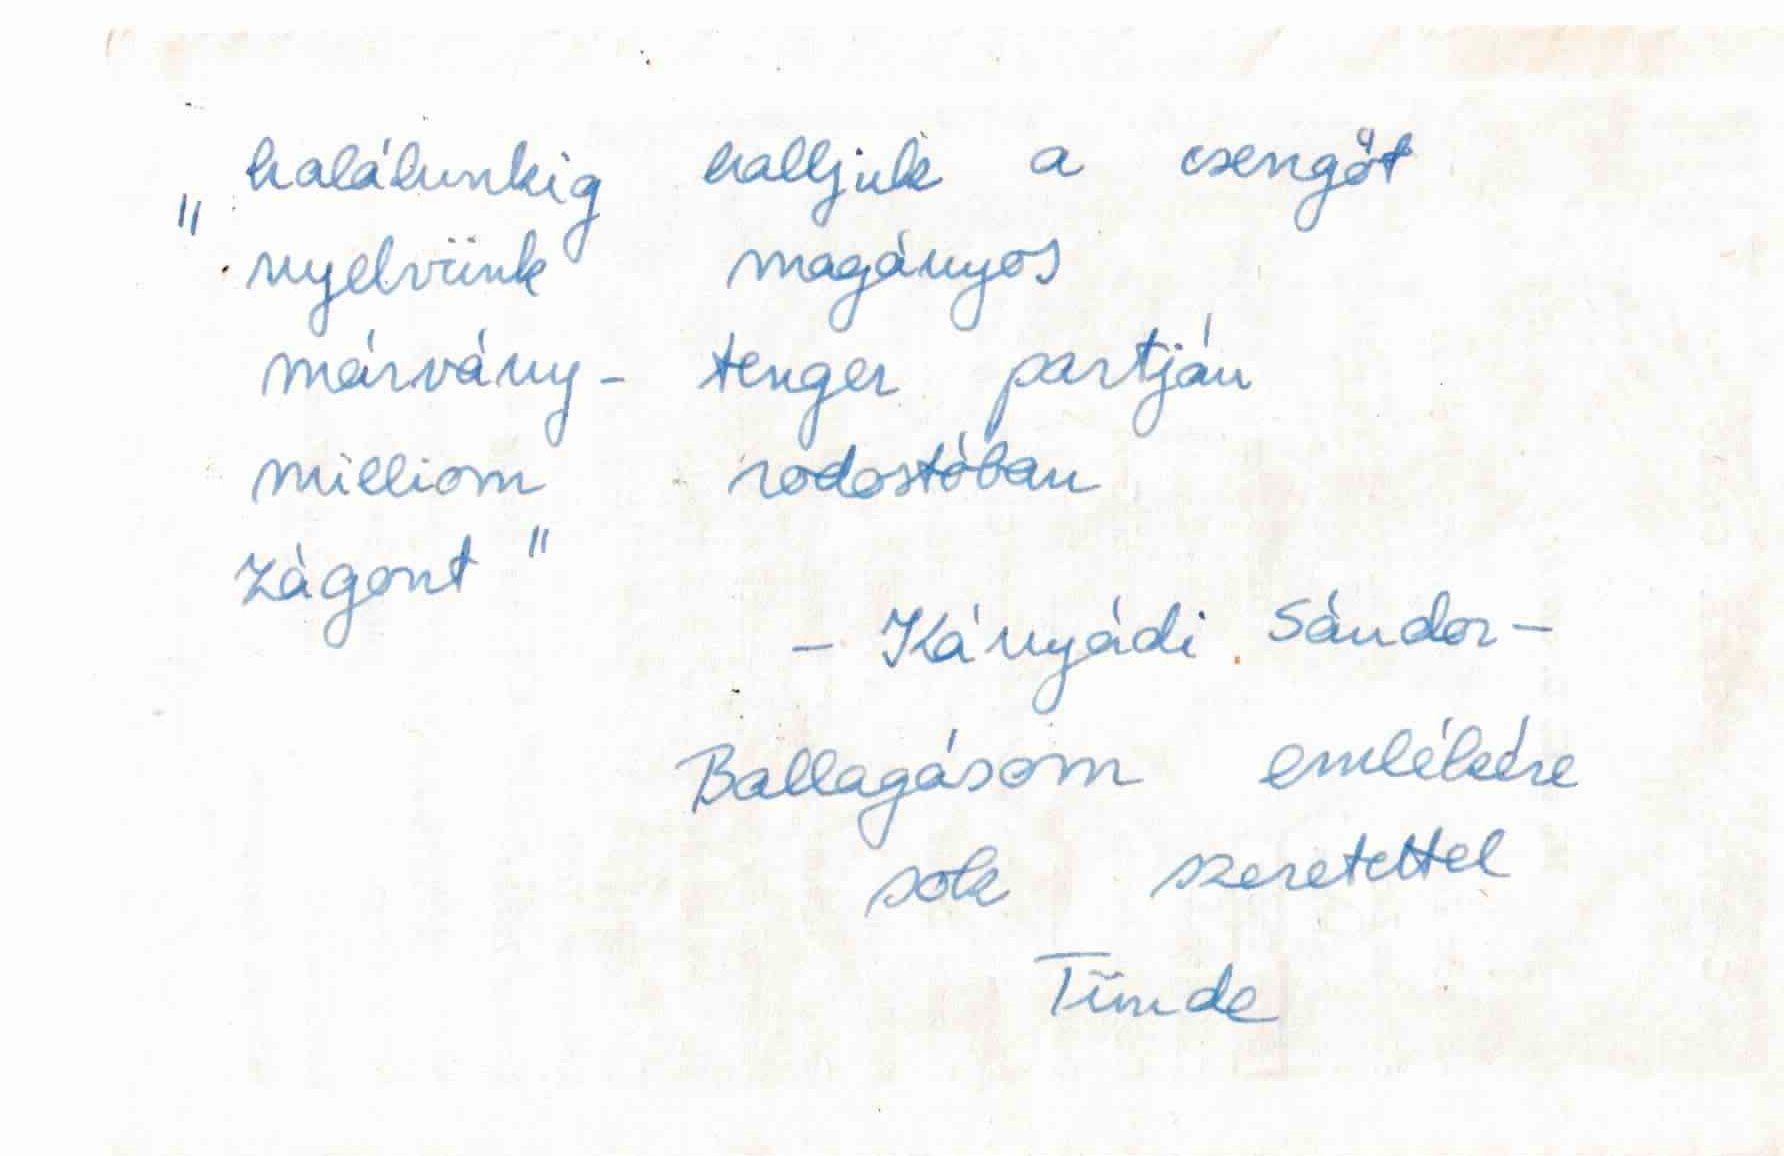 „halálunkig halljuk a csengőt
nyelvünk magányos
márvány- tenger partján
milliom rodostóban
zágont"
- Kányádi Sándor -
Ballagásom emlékére
sok szeretettel
Tünde